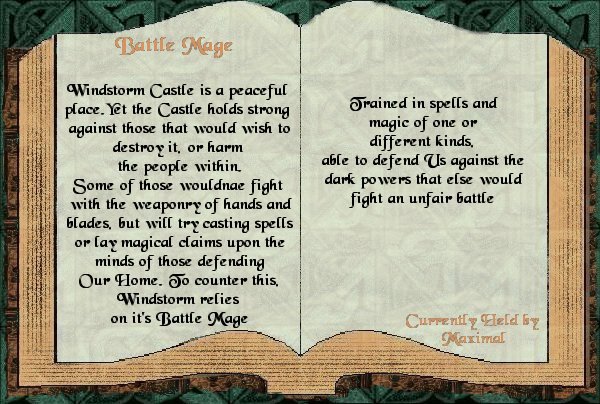 Battle Mage
Windstorm Castle is a peaceful
place.Yet the Castle holds strong
against those that would wish to
destroy it, or harm
the people within.
Some of those wouldnae fight
with the weaponry of hands and
blades, but will try casting spells
or lay magical claims upon the
minds of those defending
Our Home. To counter this,
Windstorm relies
on it's Battle Mage
Trained in spells and
magic of one or
different kinds,
able to defend Us against the
dark powers that else would
fight an unfair battle
Currently Held by
Maximal